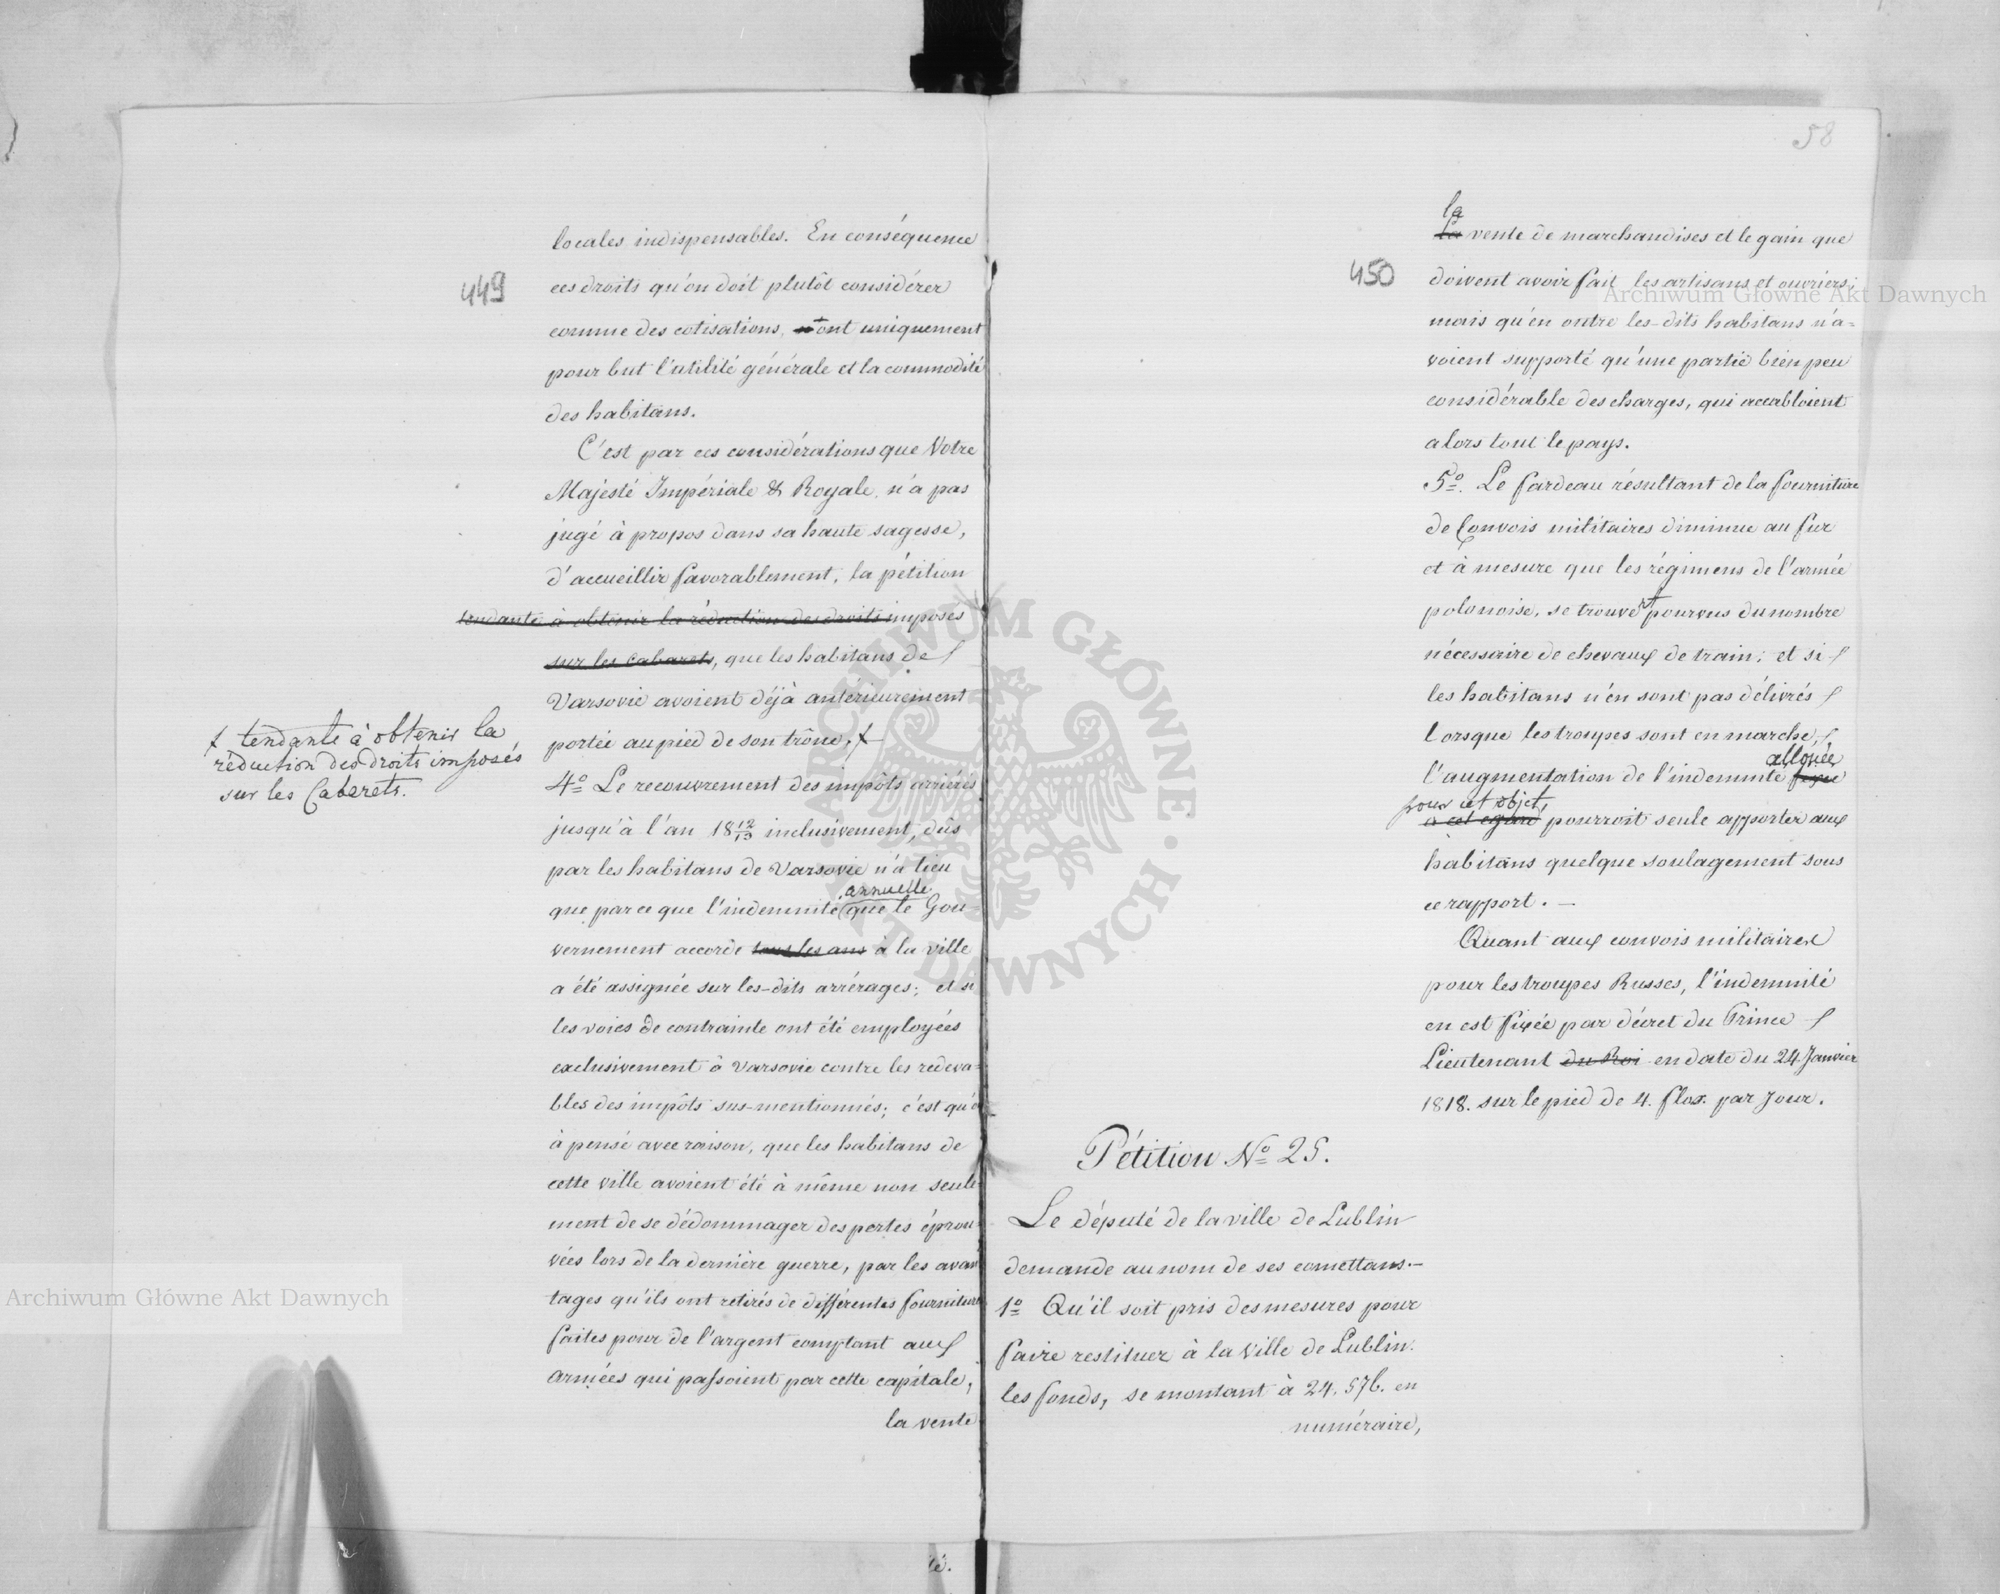 449
locales indispensables. En conséquence
ces droits qu'on doit plutôt considérer
comme des cotisations, ont uniquement
pour but l'utilité générale et la commodité
des habitans.
C'est par ces considérations que Votre
Majesté Impériale & Royale, n'a pas
jugé à propos dans sa haute sagesse,
d'accueillir favorablement, la pétition
tendante à obtenir la réduction des droits imposés
sur les cabarets, que les habitans de
Varsovie avoient déjà antérieurement
portée au pied de son trône,
tendante à obtenir la
réduction des droits imposés
sur les Cabarets.
4º Le recouvrement des impôts arriérés
jusqu'à l'an 18 12/13 inclusivement, dûs
par les habitans de Varsovie n'a lieu
annuelle
que parce que l'indemnité que le Gou-
vernement accorde tous les ans à la ville
a été assignée sur les-dits arrérages; et si
les voies de contrainte ont été employées
exclusivement à Varsovie contre les redeva=
bles des impôts sus-mentionnés; c'est qu'on
à pensé avec raison, que les habitans de
cette ville avoient été à même non seule-
ment de se dédommager des pertes éprou-
vées lors de la dernière guerre, par les avan
tages qu'ils ont retirés de différentes fournitures
faites pour de l'argent comptant aux
armées qui passoient par cette capitale,
la vente
58
450
la
la vente de marchandises et le gain que
doivent avoir fait les artisans et ouvriers;
mais qu'en outre les-dits habitans n'a=
voient supporté qu'une partie bien peu
considérable des charges, qui accabloient
alors tout le pays.
5º. Le fardeau résultant de la fourniture
de Convois militaires diminue au fur
et à mesure que les régimens de l'armée
polonoise, se trouvent pourvus du nombre
nécessaire de chevaux de train; et si
les habitans n'en sont pas délivrés
lorsque les troupes sont en marche,
allouée
l'augmentation de l'indemnité fixée
pour cet objet,
à cet égard pourroit seule apporter aux
habitans quelque soulagement sous
ce rapport. —
Quant aux convois militaires
pour les troupes Russes, l'indemnité
en est fixée par décret du Prince
Lieutenant du Roi en date du 24 Janvier
1818. sur le pied de 4. flor. par Jour.
Pétition Nº 25.
Le député de la ville de Lublin
demande au nom de ses comettans.—
1º Qu'il soit pris des mesures pour
faire restituer à la Ville de Lublin.
les fonds, se montant à 24.576. en
numéraire,
Archiwum Główne Akt Dawnych
Archiwum Główne Akt Dawnych
ARCHIWUM GŁÓWNE · AKT DAWNYCH ·